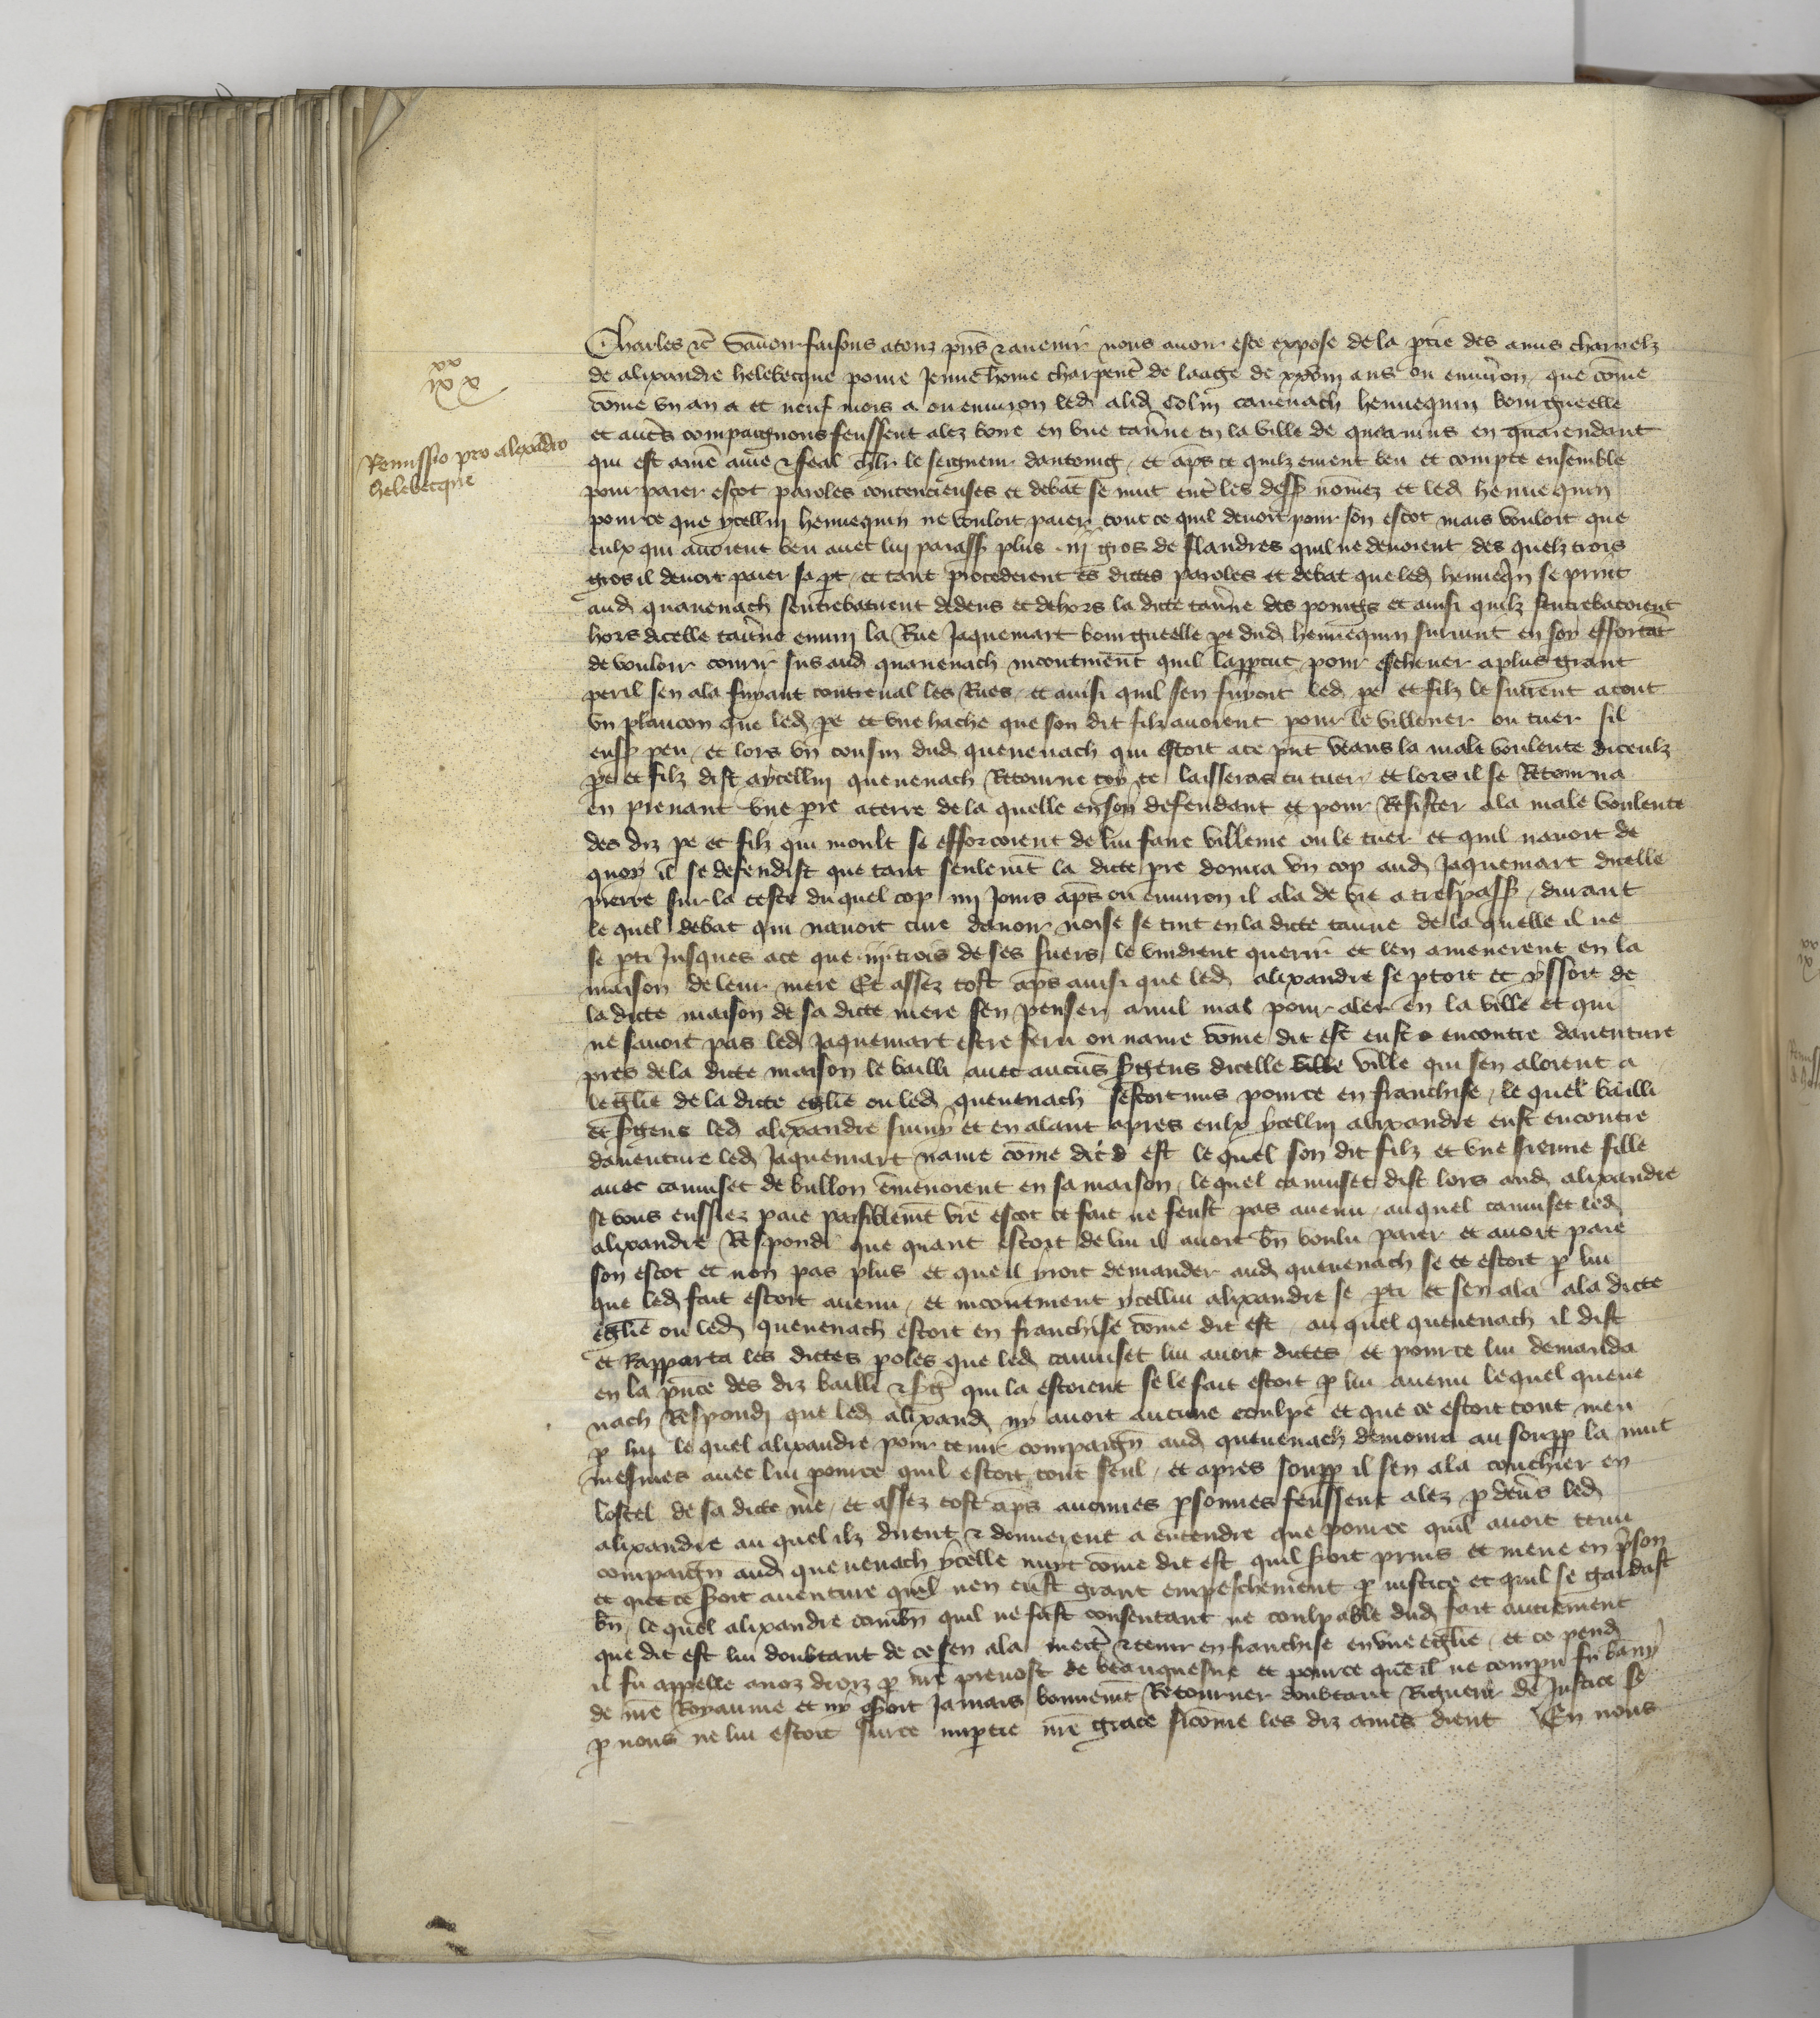 xx
ix x
Remissio pro alexandro
helebecque
Charles etc Savoir faisons a touz pns et avenir nous avoir este expose de la ptie des amis charnelz
de alixandre helebecque povre Jenne home charpent de laage de xxviii ans ou environ que come
come un an a et neuf mois a ou environ led alix Colin cavenach hennequin bourgueelle
et autres compaignons feussent alez boire en une taverne en la ville de en quarendant
qui est a nre ame et feal chlr le seigneur dantoing et aps ce quilz eurent beu et compte ensemble
pour paier escot paroles contencieuses et debat se mut ent les dess nomez et led hennequin
pource que ycellui hennequin ne vouloit paier tout ce quil devoit pour son escot mais vouloit que
eulx qui avoient beu avec lui paiass plus iij gros de flandres quil ne devoient des quelz trois
gros il devoit paier sa pt et tant procederent es dictes paroles et debat que led henneqn se print
aud quavenach sentrebatirent dedens et dehors la dicte tavne des poings et ainsi quilz sentrebatoient
hors dicelle tavne emmi la Rue Jaquemart bourgueelle pe dud hennequin survint en son effortat
de vouloir courir sus aud quavenach incontinent quil lappcut pour eschever a plus grant
peril sen ala fuyant contreval les Rues et ainsi quil sen fuyoit led pe et filz le suirent a tout
un plancon que led pe et une hache que son dit filz avoient pour le villener ou tuer sil
euss peu et lors un cousin dud quevenach qui estoit a ce pnt veans la male voulente diceulz
pe et filz dist a ycellui quevenach Retourne toy te laisseras tu tuer et lors il se Retourna
en prenant une pre a terre de la quelle en son defendant et pour Resister a la male voulente
des diz pe et filz qui moult se efforcoient de lui faire villenie ou le tuer et quil navoit de
quoy il se defendist que tant seulemt la dicte pre donna un cop aud Jaquemart dicelle
pierre sur la teste du quel cop iiij Jours aps ou environ il ala de vie a trespass durant
le quel debat qui navoit cure davoir noise se tint en la dicte tavne de la quelle il ne
se pti Jusques a ce que iij trois de ses suers le vindrent querir et len amenerent en la
maison de leur mere Et assez tost aps ainsi que led alixandre se ptoit et yssoit de
la dicte maison de sa dicte mere sen penser a nul mal pour aler en la ville et qui
ne savoit pas led Jaquemart estre feru ou navre come dit est eust encontre daventure
pres de la dicte maison le bailli avec aucuns sgens dicelle ville ville qui sen aloient a
leglie de la dicte eglie ou led quevenach sestoit mis pource en franchise le quel bailli
et sgens led alixandre suivy et en alant apres eulx ycellui alixandre eust encontre
daventure led Jaquemart navre come dit d est le quel son dit filz et une sienne fille
avec camuset de bullon emmenoient en sa maison le quel camuset dist lors aud alixandre
se vous eussiez paie paisiblemt vre escot ce fait ne feust pas avenu au quel camuset led
alixandre Respondi que quant estoit de lui il avoit bn voulu paier et avoit paie
son escot et non pas plus et que il yroit demander aud quevenach se ce estoit p lui
que led fait estoit avenu et incontinent ycellui alixandre se pti et sen ala a la dicte
eglie ou led quevenach estoit en franchise come dit est au quel quevenach il dist
et Rapporta les dictes poles que led camuset lui avoit dictes et pource lui demanda
en la pnce des diz bailli et sg qui la estoient se le fait estoit p lui avenu lequel queve
nach Respond que led alixand ny avoit aucune coulpe et que ce estoit tout meu
p lui le quel alixandre pour tenir compaign aud quevenach demoura au soupp la nuit
mesmes avec lui pource quil estoit tout seul et apres soupp il sen ala couchier en
lostel de sa dicte me et assez tost aps aucunes psonnes feussent alez p devs led
alixandre au quel ilz dirent et donnerent a entendre que pource quil avoit tenu
compaign aud quevenach ycelle nuyt come dit est quil soit prins et mene en pson
et que ce soit aventure quel nen eust grant empeschement p justice et quil se gardast
bn le quel alixandre combn quil ne fust consentant ne coulpable dud fait autrement
que dit est lui doubtant de ce sen ala mect et tenir en franchise en une eglie et ce pend
il fu appelle a noz droiz p nre prevost de beauquesne et pource que il ne compu fu bany
de nre Royaume et ny soit Jamais bonnemt Retourner doubtant Rigueur de Justice se
p nous ne lui estoit sur ce impartie nre grace sicome les diz amis dient En nous